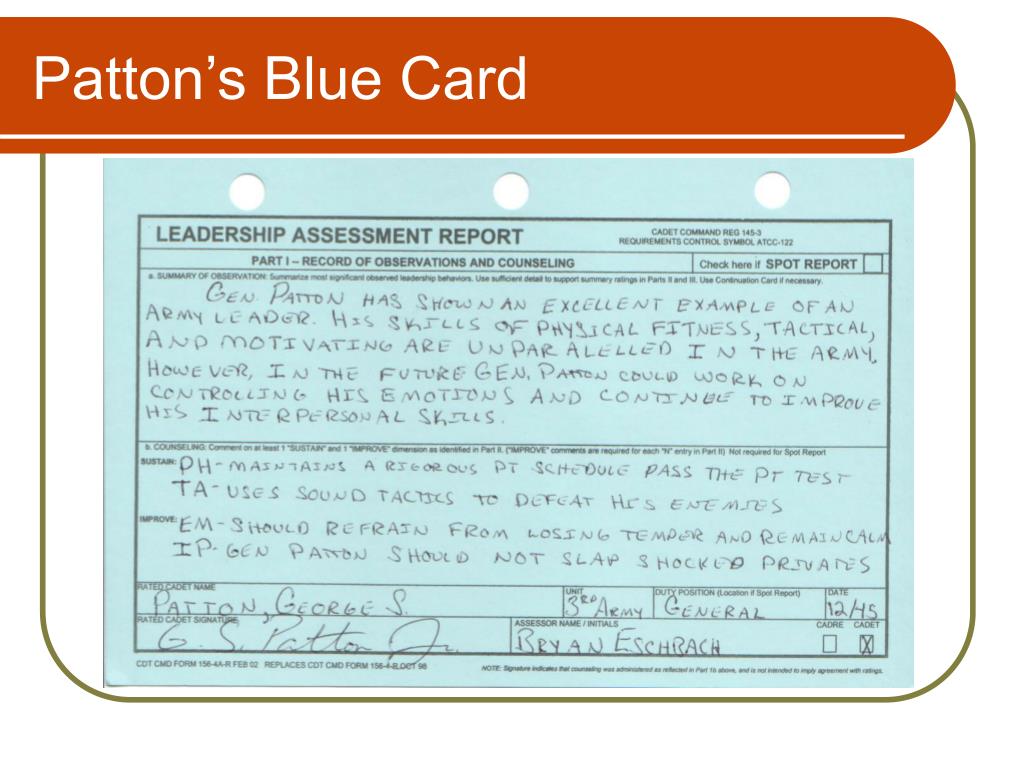 Patton’s Blue Card
LEADERSHIP ASSESSMENT REPORT
CADET COMMAND REG 145-3
REQUIREMENTS CONTROL SYMBOL ATCC-122
PART I – RECORD OF OBSERVATIONS AND COUNSELING
Check here if SPOT REPORT
a. SUMMARY OF OBSERVATION: Summarize most significant observed leadership behaviors. Use sufficient detail to support summary ratings in Parts II and III. Use Continuation Card if necessary.
GEN. PATTON HAS SHOWN AN EXCELLENT EXAMPLE OF AN
ARMY LEADER. HIS SKILLS OF PHYSICAL FITNESS, TACTICAL,
AND MOTIVATING ARE UNPARALELLED IN THE ARMY.
HOWEVER, IN THE FUTURE GEN. PATTON COULD WORK ON
CONTROLLING HIS EMOTIONS AND CONTINUE TO IMPROVE
HIS INTERPERSONAL SKILLS.
b. COUNSELING: Comment on at least 1 "SUSTAIN" and 1 "IMPROVE" dimension as identified in Part II. ("IMPROVE" comments are required for each "N" entry in Part II) Not required for Spot Report
SUSTAIN: PH-MAINTAINS A RIGOROUS PT SCHEDULE PASS THE PT TEST
TA-USES SOUND TACTICS TO DEFEAT HIS ENEMIES
IMPROVE: EM-SHOULD REFRAIN FROM LOSING TEMPER AND REMAIN CALM
IP-GEN PATTON SHOULD NOT SLAP SHOCKED PRIVATES
RATED CADET NAME
PATTON, GEORGE S.
UNIT
3RD ARMY
DUTY POSITION (Location if Spot Report)
GENERAL
DATE
12/45
RATED CADET SIGNATURE
G. S. Patton Jr.
ASSESSOR NAME / INITIALS
BRYAN ESCHBACH
CADRE CADET
X
CDT CMD FORM 156-4A-R FEB 02 REPLACES CDT CMD FORM 156-4-R OCT 98
NOTE: Signature indicates that counseling was administered as reflected in Part 1b above, and is not intended to imply agreement with ratings.